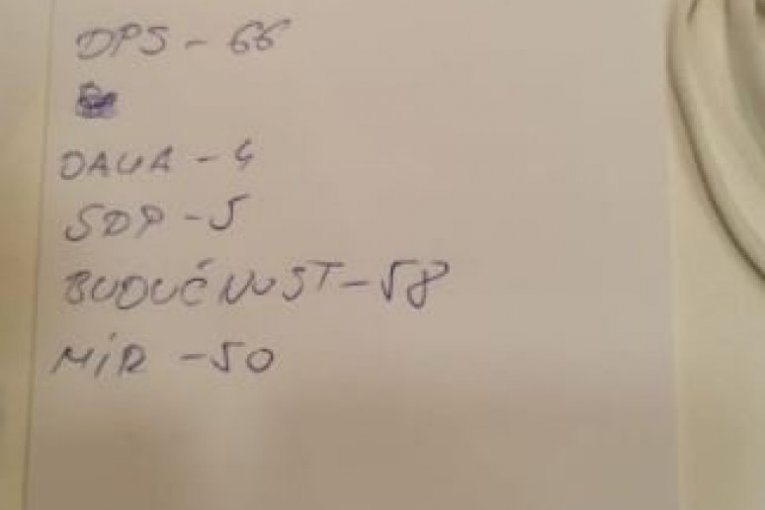 DPS - 66
DAUA - 4
SDP - 5
BUDUĆNOST - 58
MIR - 50